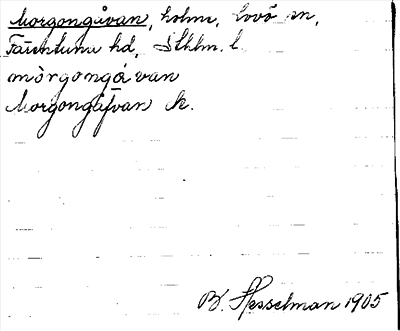 Morgongåvan, holme, Lovö sn,
Färentuna hd, Sthlm. l.
mòrgongǻvan
Morgongåfvan k.
B. Hesselman 1905